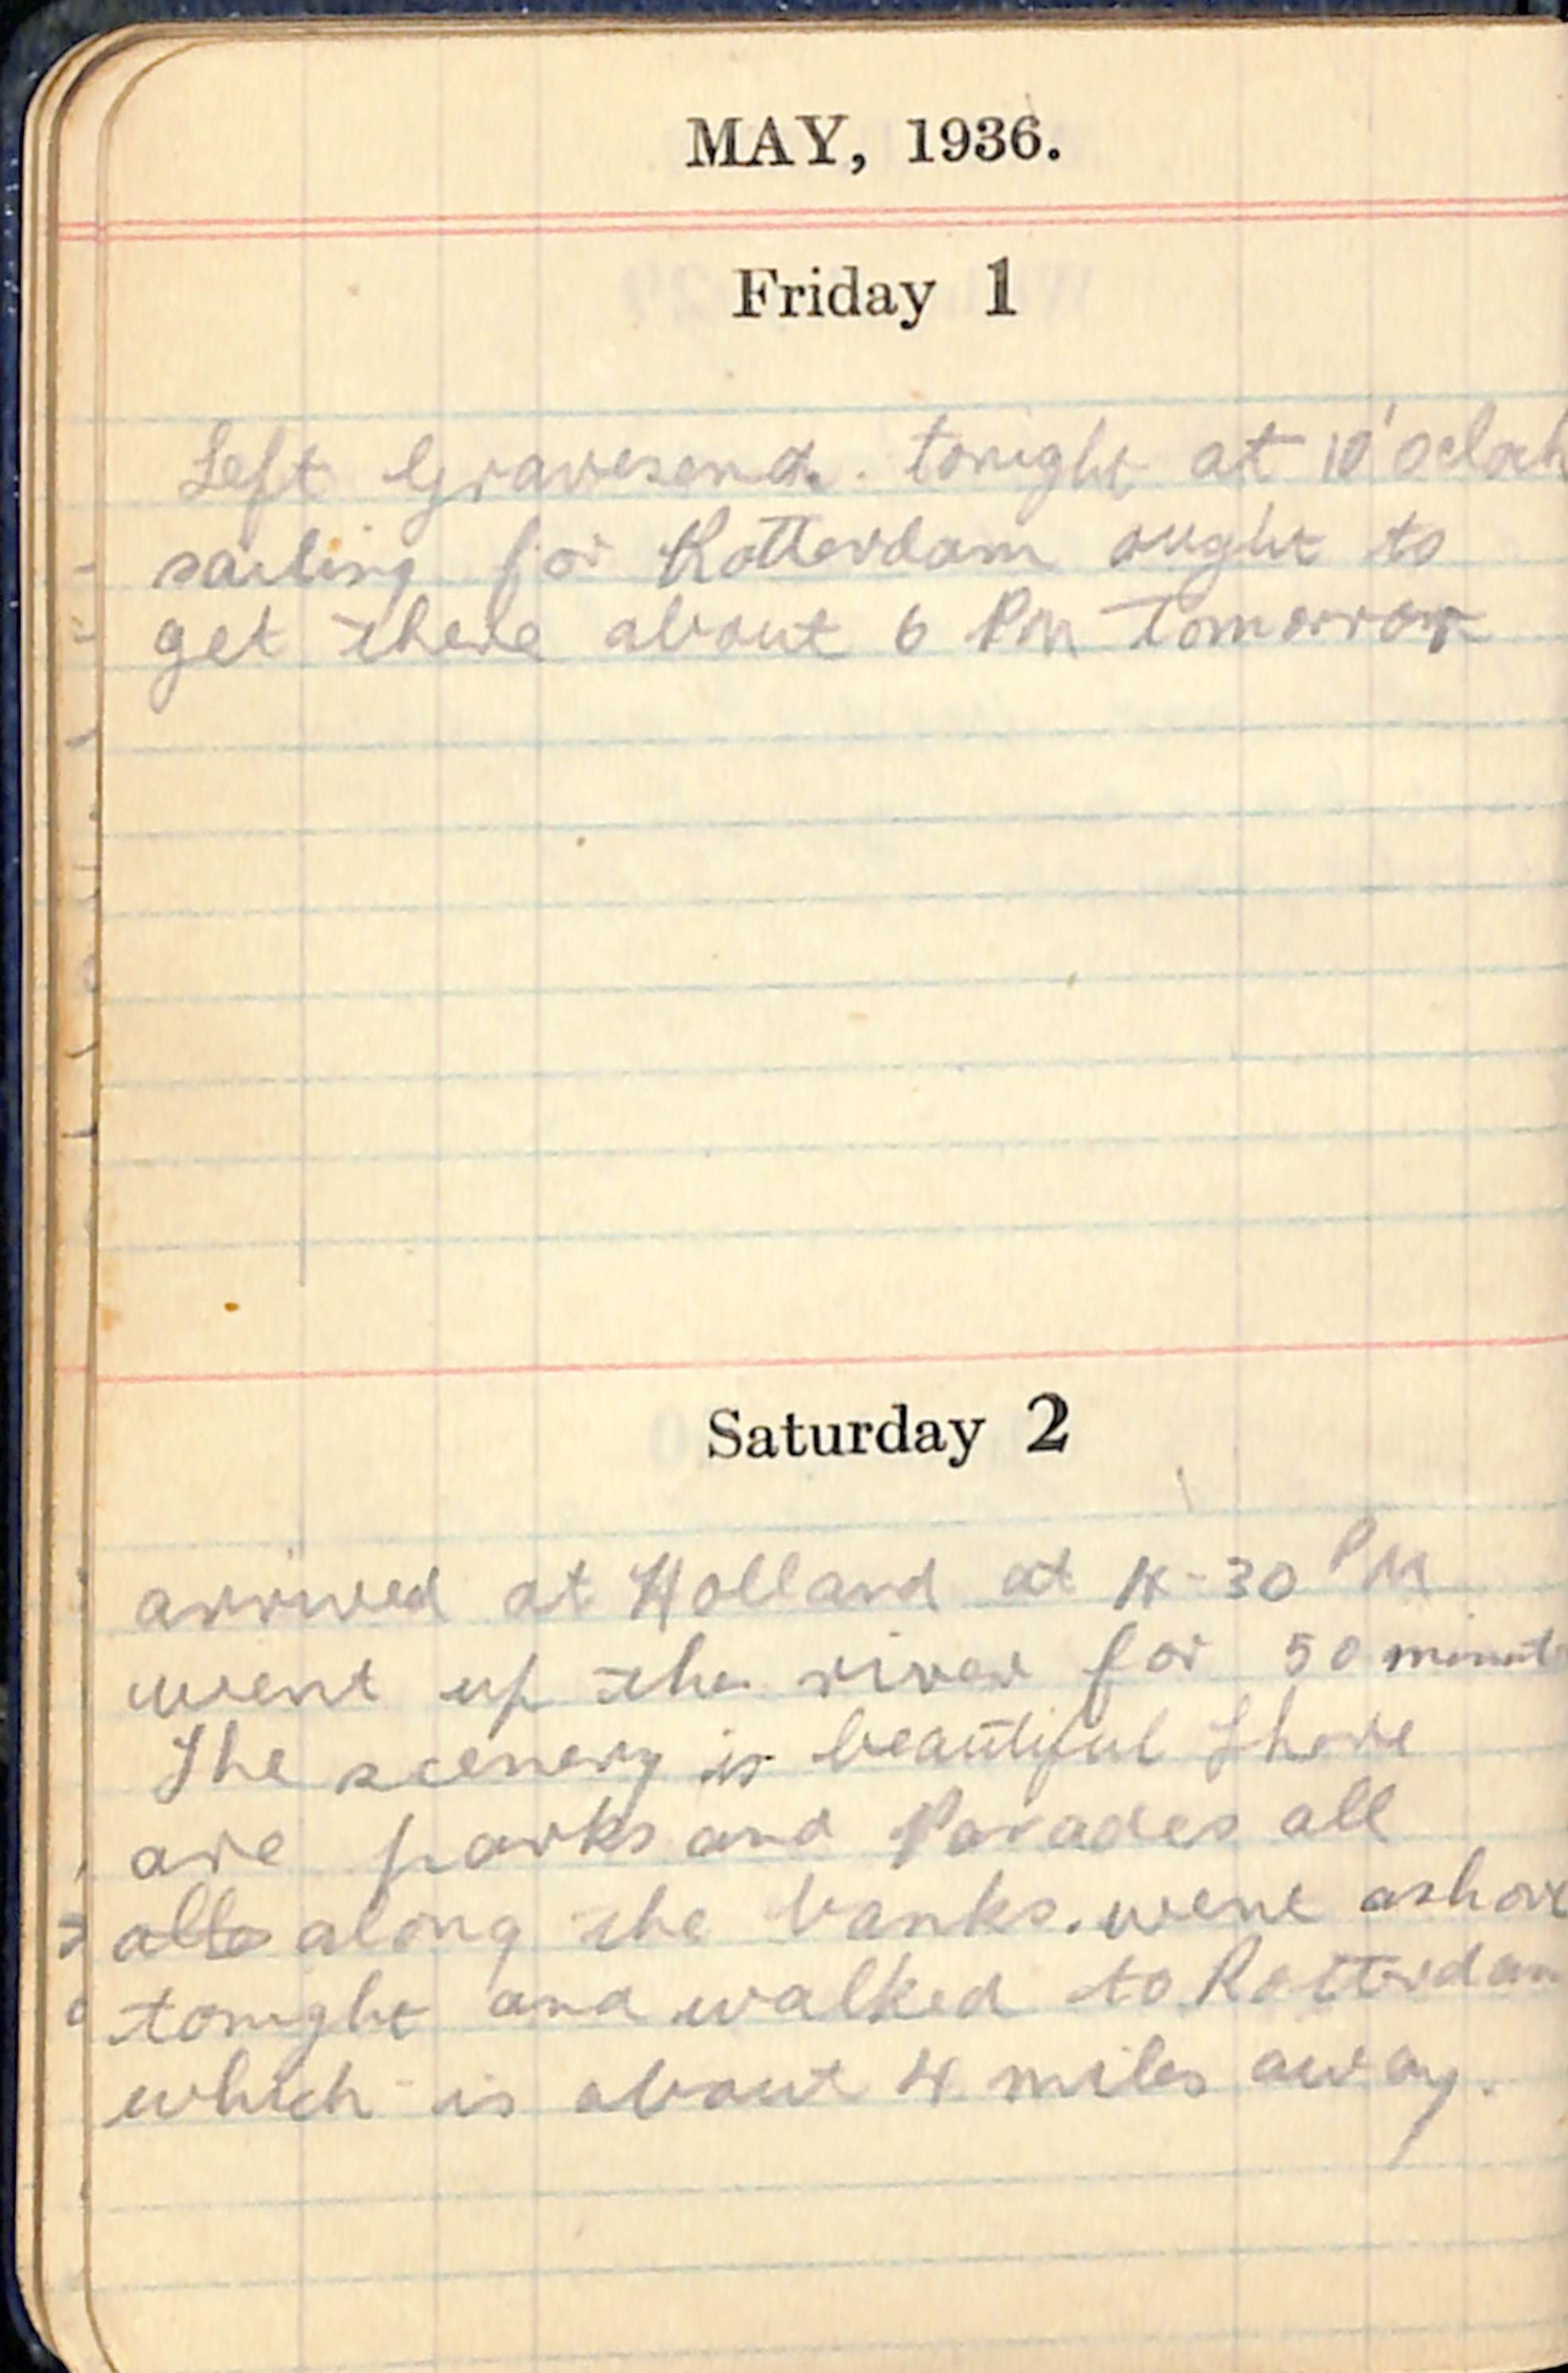 MAY, 1936.
Friday 1
Left Gravesend. tonight at 10'Oclock
sailing for Rotterdam ought to
get there about 6 PM Tomorrow
Saturday 2
arrived at Holland at 4-30 PM
went up the river for 50 minut
The scenery is beautiful There
are parks and Parades all
allo along the banks. went ashore
tonight and walked to Rotterdam
which is about 4 miles away.